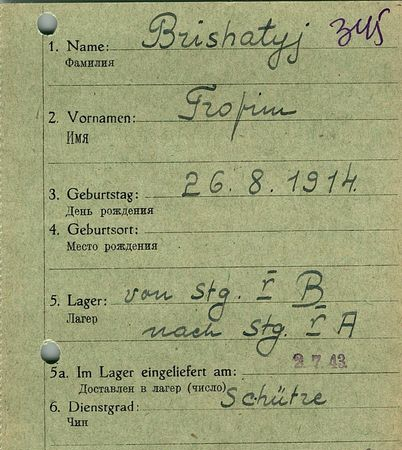 345
1. Name: Brishatyj
Фамилия
2. Vornamen: Trofim
Имя
3. Geburtstag: 26.8.1914
День рождения
4. Geburtsort:
Место рождения
5. Lager: von Stg. I B
Лагер nach Stg. I A
5a. Im Lager eingeliefert am: 2.7.43
Доставлен в лагер (число)
6. Dienstgrad: Schütze
Чин